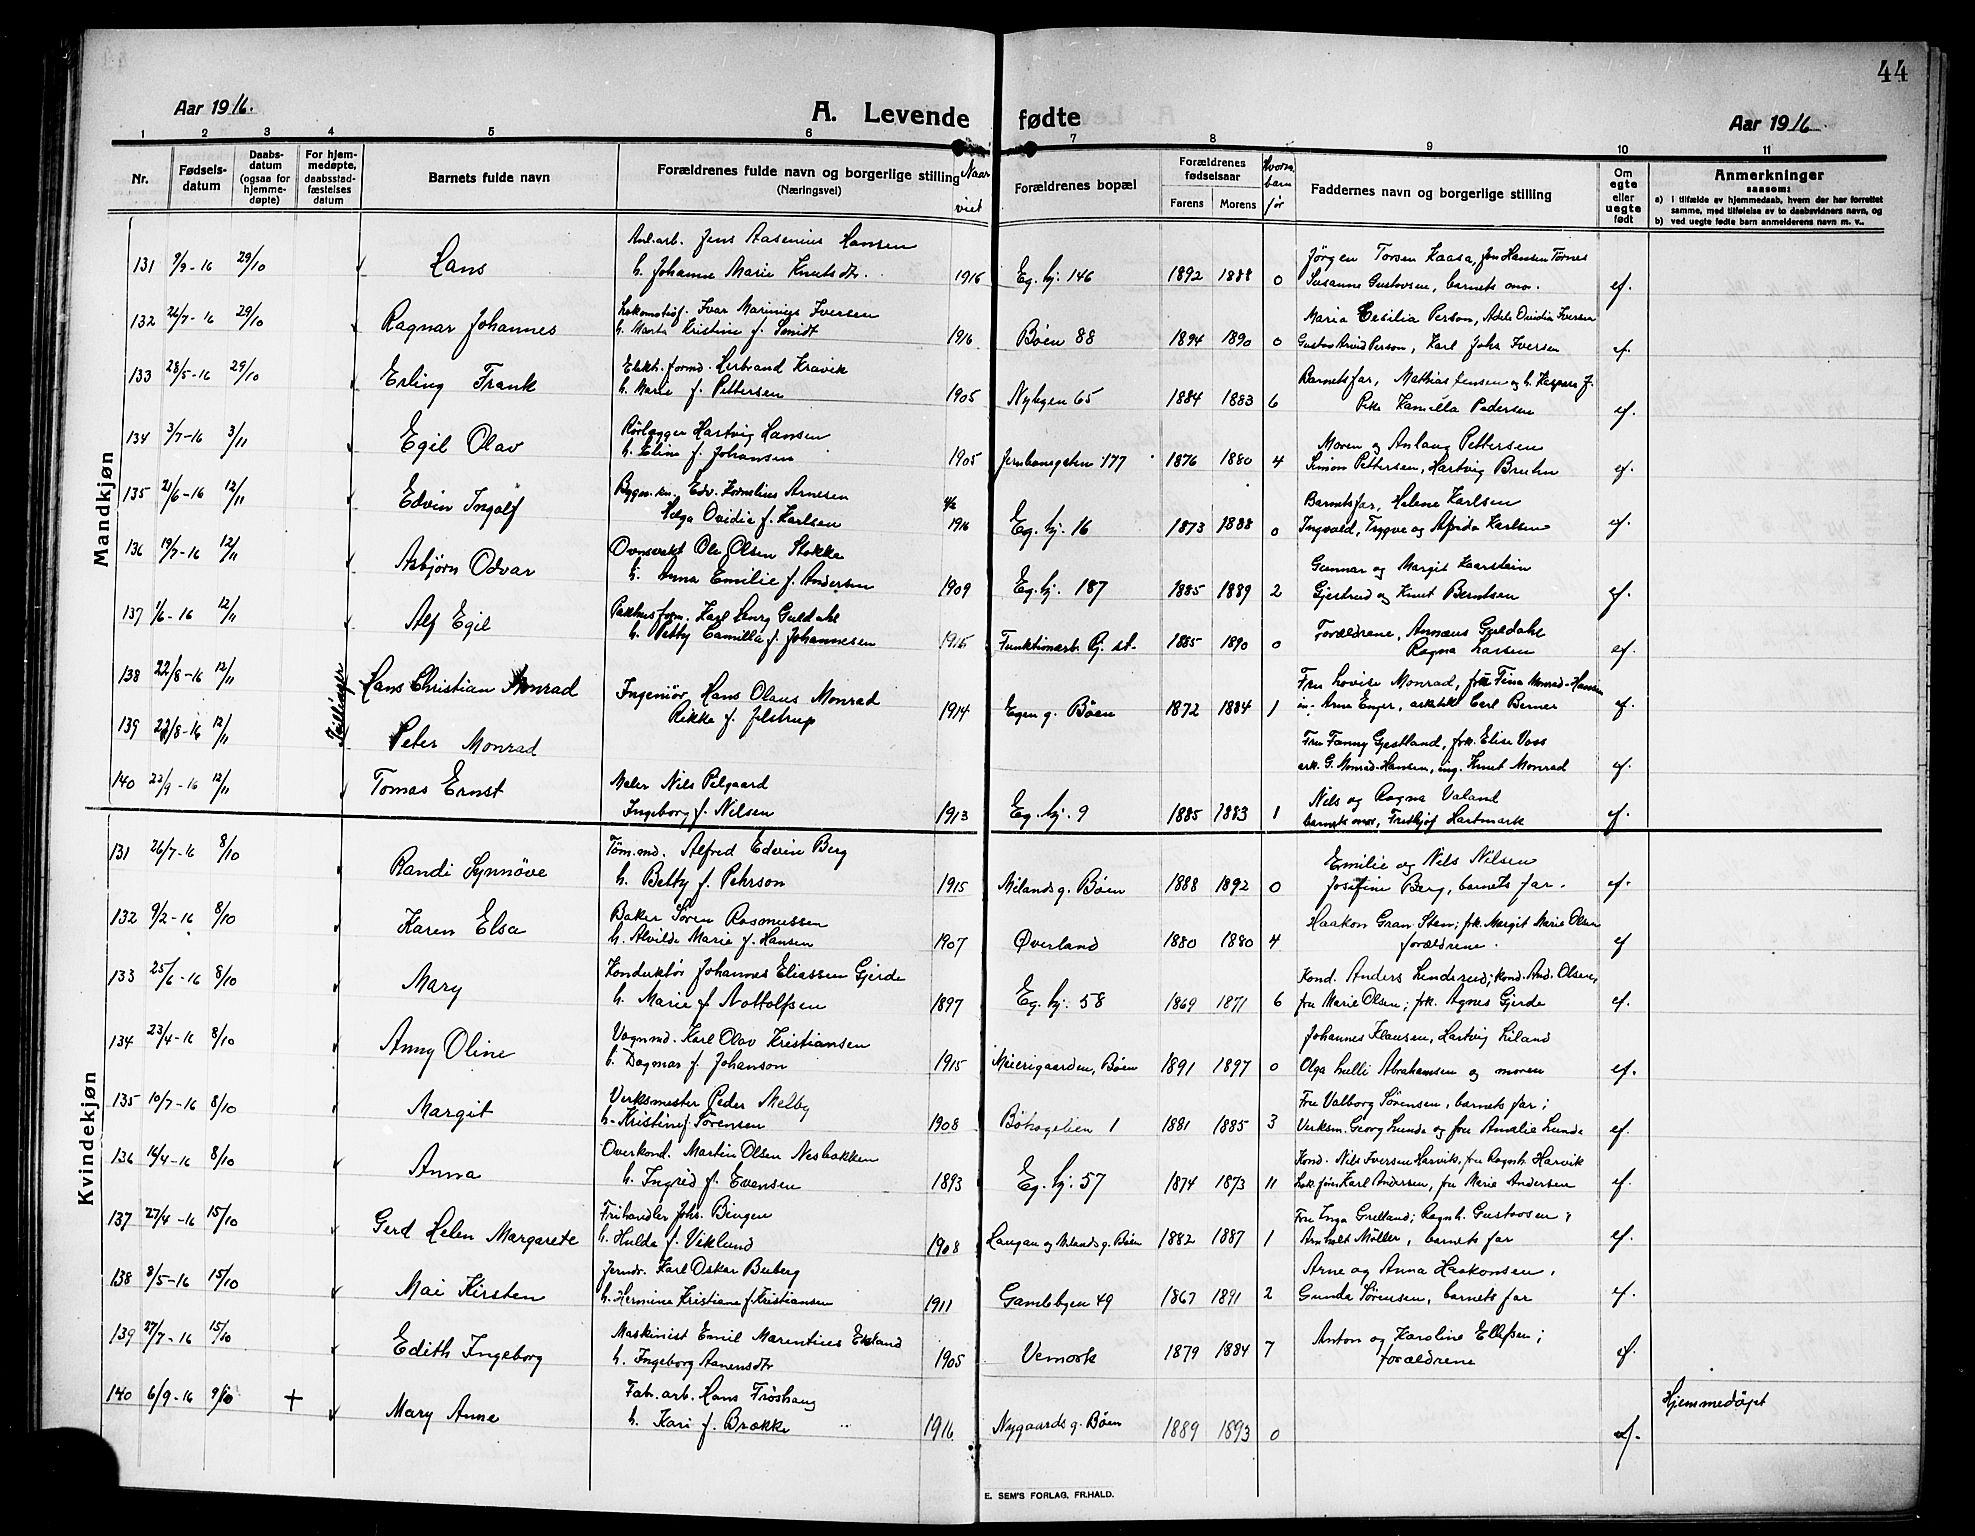 44
Aar 1916.
A. Levende fødte
Aar 1916.
1 2 3 4 5 6 7 8 9 10 11
Nr.
Fødsels-
datum
Daabs-
datum
(ogsaa for
hjemme-
døpte)
For hjem-
medøpte,
daabsstad-
fæstelses
datum
Barnets fulde navn
Forældrenes fulde navn og borgerlige stilling
(Næringsvei)
Naar
viet
Forældrenes bopæl
Forældrenes
fødselsaar
Farens Morens
Hvorm.
barn
før
Faddernes navn og borgerlige stilling
Om
egte
eller
uegte
født
Anmerkninger
saasom:
a) i tilfælde av hjemmedaab, hvem der har forrettet
samme, med tilføielse av to daabsvidners navn, og
b) ved uegte fødte barn anmelderens navn m. v..
Mandkjøn
Anl.arb. Jens Aasenius Hansen Jørgen Torsen Kaasa, Jon Hansen Tornes
131 9/9-16 29/10 Hans h. Johanne Marie Knutsdtr. 1916 Eg. hj. 146 1892 1888 0 Susanne Gustavsen, barnets mor. ef.
Lokomotivf. Ivar Marinius Iversen Maria Cesilia Person, Adele Ovidia Iversen
132 26/7-16 29/10 Ragnar Johannes h. Marta Kristine f. Smidt 1916 Bøen 88 1894 1890 0 Gustav Arvid Person, Karl Johs Iversen ef.
Elektr. formd. Herbrand Kravik Barnets far, Mathias Jensen og h. Kaspara J.
133 28/5-16 29/10 Erling Frank h. Marie f. Pettersen 1905 Nybyen 65 1884 1883 6 Pike Kamilla Pedersen ef.
Rørlægger Hartvig Hansen Moren og Anlaug Pettersen
134 3/7-16 3/11 Egil Olav h. Eline f. Johansen 1905 Jernbanegaten 177 1876 1880 4 Simon Pettersen, Hartvig Bruhn ef.
Bygm. Edv. Kornelius Arnesen 4/2 Barnets far, Helene Karlsen
135 21/6-16 12/11 Edvin Ingolf Helga Ovidie f. Karlsen 1916 Eg. hj. 16 1873 1888 0 Ingvald, Trygve og Alfrida Karlsen ef.
Ovnsvakt Ole Olsen Stokke Gunnar og Margit Kaarstein
136 19/7-16 12/11 Asbjørn Odvar h. Anna Emilie f. Andersen 1909 Eg. hj. 187 1885 1889 2 Gjertrud og Knut Berntsen ef.
Pakhusform. Karl Henry Guldahl Forældrene, Annæus Guldahl
137 1/6-16 12/11 Alf Egil h. Petty Camilla f. Johannesen 1915 Funktionærb. Rj. st. 1885 1890 0 Ragna Larsen ef.
Tvillinger
138 22/8-16 12/11 Hans Christian Monrad Ingeniør Hans Olaus Monrad Fru Lovise Monrad, frk Tina Monrad-Hansen
Rikke f. Jelstrup 1914 Egen g. Bøen 1872 1884 1 in. Arne Enger, arkitekt Carl Berner ef.
139 22/8-16 12/11 Peter Monrad Fru Fanny Gjestland, frk. Elise Voss
ark. G. Monrad-Hansen, ing. Knut Monrad ef.
140 22/9-16 12/11 Tomas Ernst Maler Nils Pilgaard Nils og Ragna Valand
Ingeborg f. Nilsen 1913 Eg. hj. 9 1885 1883 1 barnets mor, Fridtjof Hartmark ef.
Kvindekjøn
131 26/7-16 8/10 Randi Synnøve Tøm.md. Alfred Edvin Berg Emilie og Nils Nilsen
h. Betty f. Pehrson 1915 Milands g. Bøen 1888 1892 0 Josefine Berg, barnets far. ef.
132 9/2-16 8/10 Karen Elsa Baker Søren Rasmussen Haakon Gran Stem; frk. Margit Marie Olsen
h. Alvilde Marie f. Hansen 1907 Øverland 1880 1880 4 forældrene. ef
133 25/6-16 8/10 Mary Konduktør Johannes Eliassen Gjerde Kond. Anders Lunderud; kond. And. Olsen,
h. Marie f. Nottolfsen 1897 Eg. hj. 58 1869 1871 6 fru Marie Olsen; frk. Agnes Gjerde ef.
134 23/4-16 8/10 Anny Oline Vognmd. Karl Olav Kristiansen Johannes Klausen, Hartvig Liland
h. Dagmar f. Johanson 1915 Meierigaarden, Bøen 1891 1897 0 Olga Lulli Abrahamsen og moren ef.
135 10/7-16 8/10 Margit Verksmester Peder Melby Fru Valborg Sørensen, barnets far;
h. Kristine f. Sørensen 1908 Bøhagebien 1 1881 1885 3 Verksm. Georg Lunde og fru Amalie Lunde ef.
136 14/4-16 8/10 Anna Overkond. Martin Olsen Nesbakken Kond. Nils Iversen Harvik, fru Ragnh. Harvik
h. Ingrid f. Evensen 1893 Eg. hj. 57 1874 1873 11 Lok.før. Karl Andersen, fru Marie Andersen ef.
137 27/4-16 15/10 Gerd Helen Margarete Frihandler Johs. Bingen Fru Inga Grelland; Ragnh. Gustavsen;
h. Hulda f. Viklund 1908 Haugan og Milands g. Bøen 1882 1887 1 Arnholt Møller, barnets far ef.
138 8/5-16 15/10 Mai Kirsten Jerndr. Karl Oskar Buberg Arne og Anna Haakonsen,
h. Hermine Kristiane f. Kristiansen 1911 Gamlebyen 49 1867 1891 2 Gunda Sørensen, barnets far ef.
139 27/7-16 15/10 Edith Ingeborg Maskinist Emil Marentius Ekland Anton og Karoline Ellefsen;
h. Ingeborg Aanensdtr 1905 Vemork 1879 1884 7 forældrene ef.
140 6/9-16 9/10 + Mary Anne Fab. arb. Hans Frøshaug Hjemmedøpt
h. Kari f. Brække 1916 Nygaards g. Bøen 1889 1893 0 ef.
E. SEM'S FORLAG, FR.HALD.